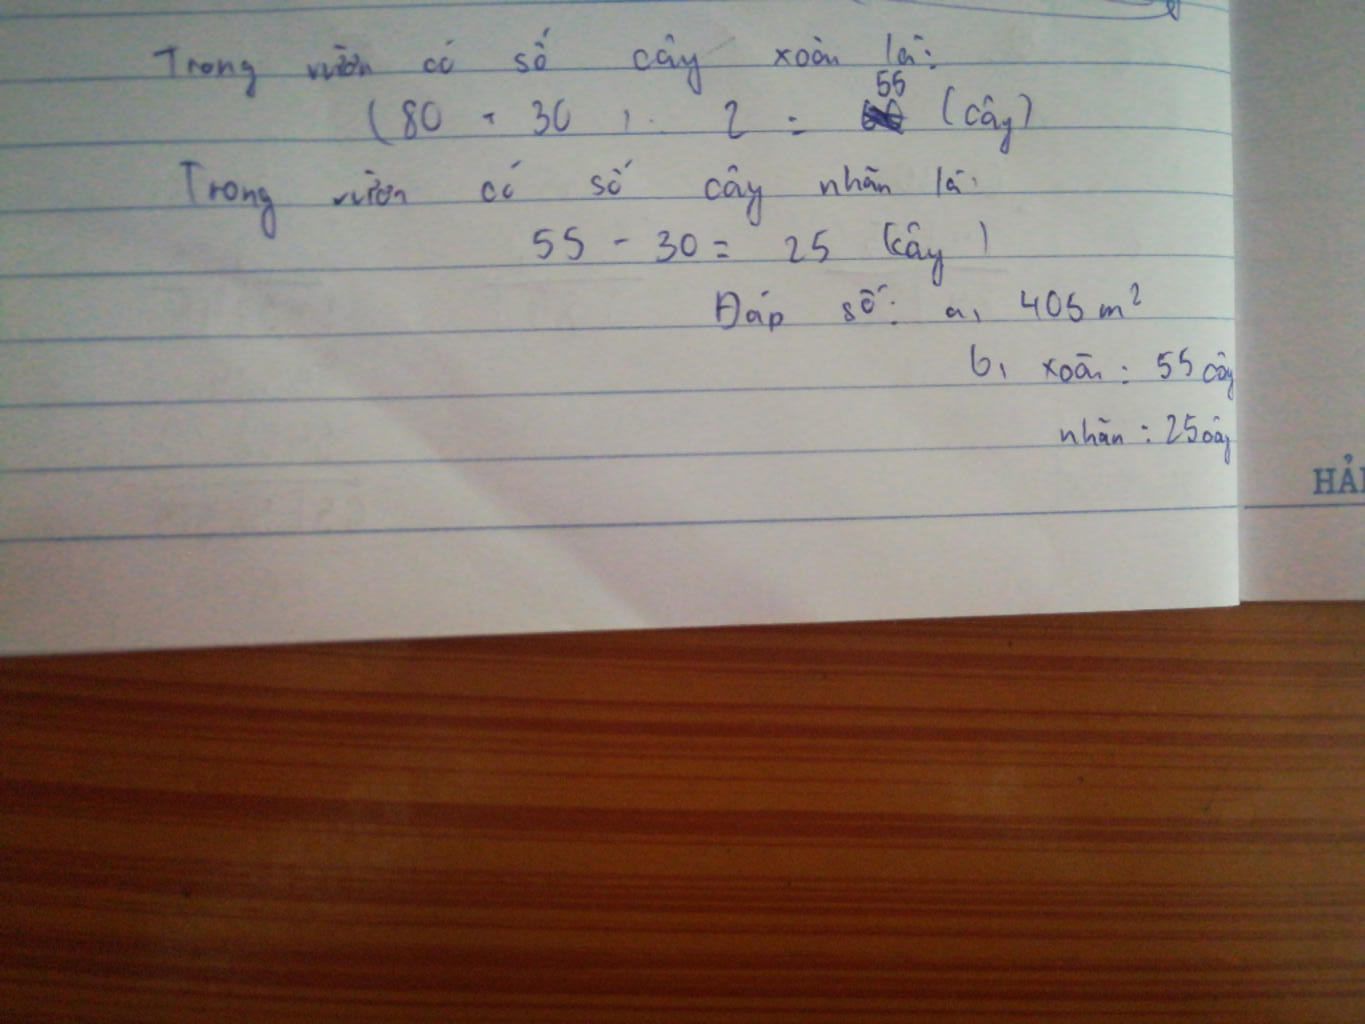 Trong vườn có số cây xoàn là:
(80 + 30 ) : 2 = 55 (cây)
Trong vườn có số cây nhãn là:
55 - 30 = 25 (cây)
Đáp số: a, 405 m²
b, xoàn: 55 cây
nhãn: 25 cây